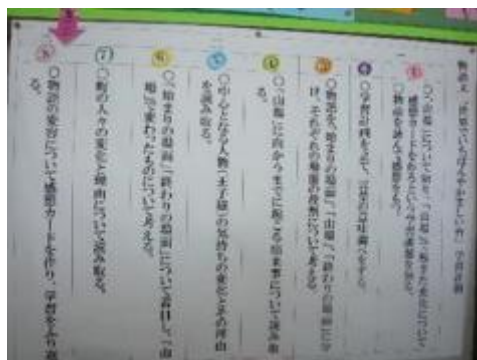 物語文「世界でいちばんやかましい音」学習計画
①
○「山場」について知り、「山場」で起きた変化について
感想カードを作ろうという学習課題を知る。
○物語を読んで感想をもつ。
②
○学習計画を立て、言葉の意味調べをする。
③
○物語を、「始まりの場面」、「山場」、「終わりの場面」に分
け、それぞれの場面の役割について考える。
④
○「山場」に向かうまでに起こる出来事について読み取
る。
⑤
○中心となる人物(王子様)の気持ちの変化とその理由
を読み取る。
⑥
○「始まりの場面」「終わりの場面」について着目し、「山
場」で変わったものについて考える。
⑦
○町の人々の変化と理由について読み取る。
⑧
○物語の変容について感想カードを作り、学習をふり返
る。